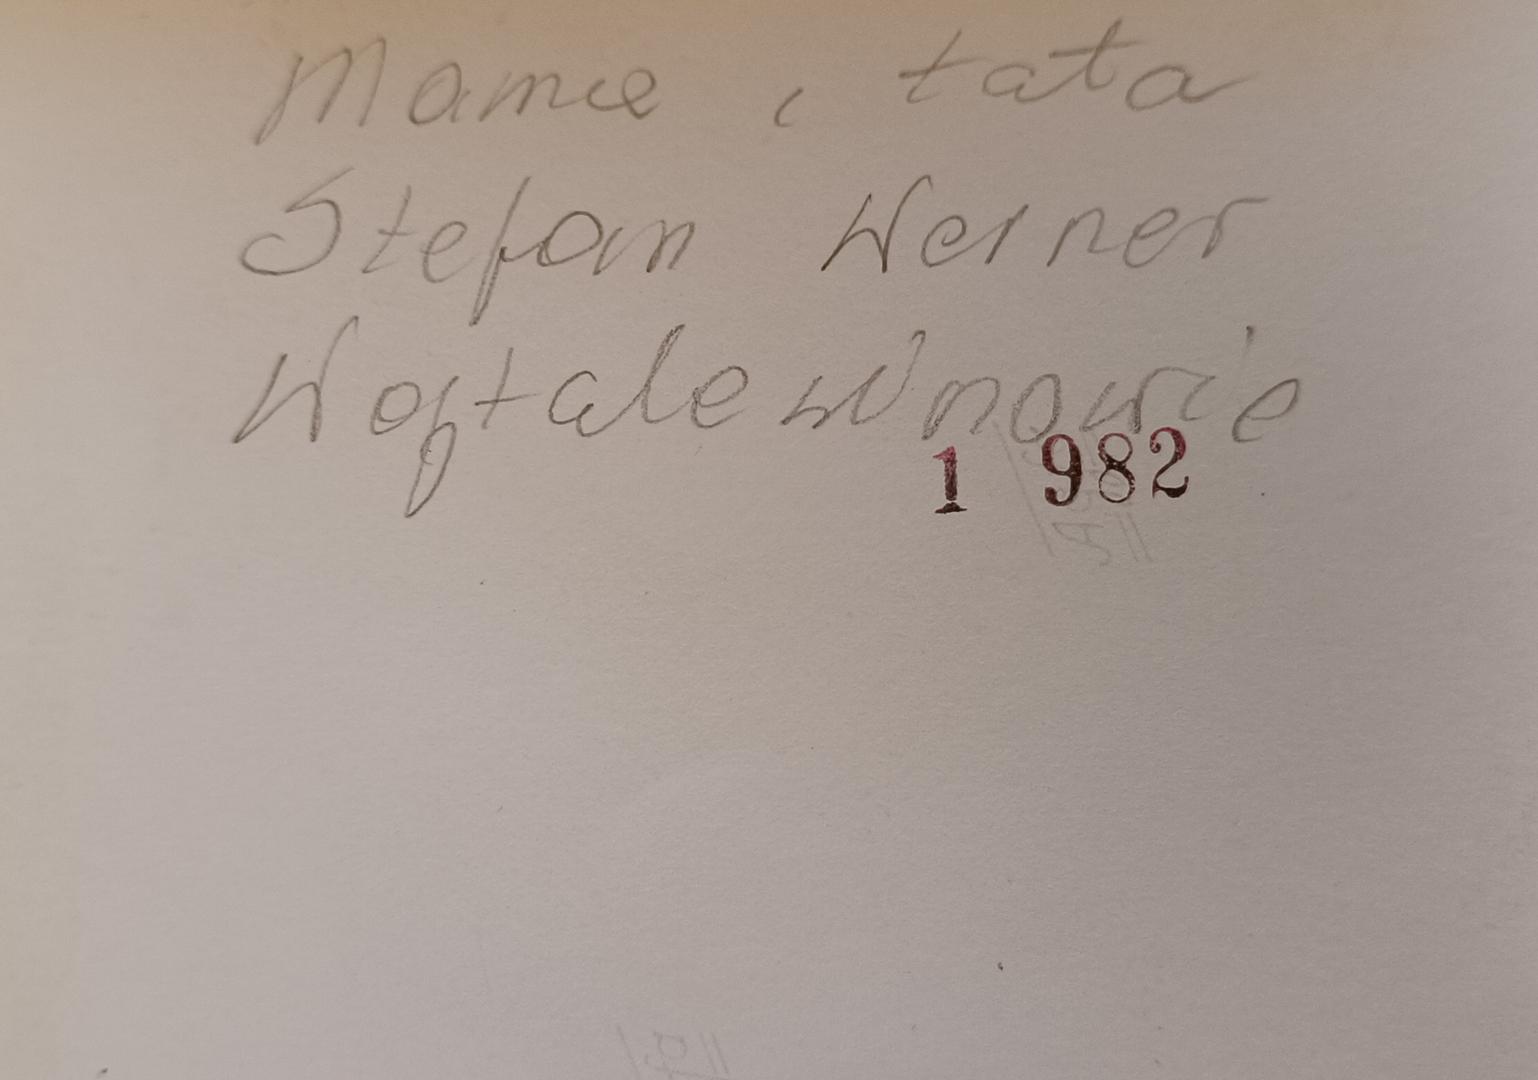 Mame i tata
Stefan Werner
Wojtalewinowie
1 982